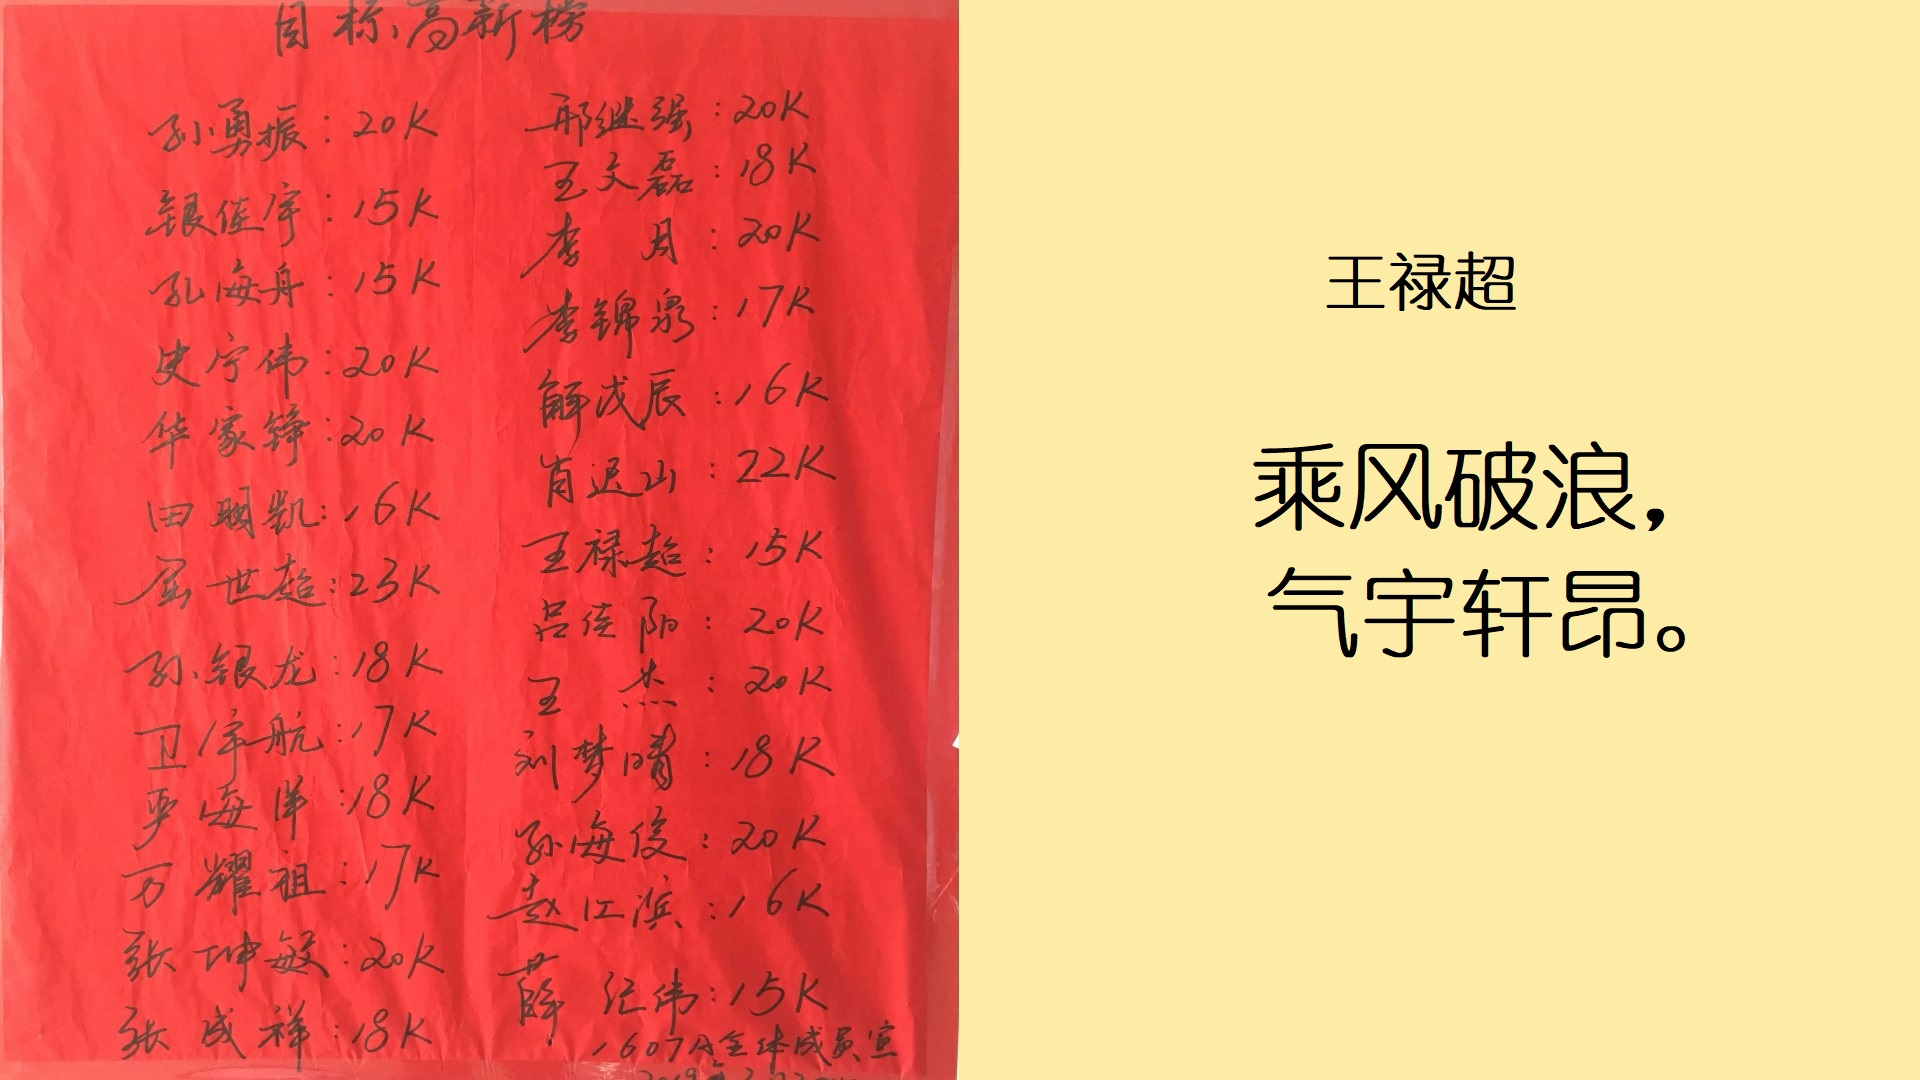 目标、高新榜
孙勇振：20K
银佳宇：15K
孔海舟：15K
史宁伟：20K
华家锋：20K
田明凯：16K
屈世超：23K
孙银龙：18K
卫宇航：17K
严海洋：18K
万耀祖：17K
张坤敏：20K
张成祥：18K
邢继强：20K
王文磊：18K
李月：20K
李锦泉：17K
解戊辰：16K
肖迟山：22K
王禄超：15K
吕佳阳：20K
王杰：20K
刘梦晴：18K
孙海俊：20K
赵江滨：16K
薛纪伟：15K
1607A全体成员宣
王禄超
乘风破浪，
气宇轩昂。